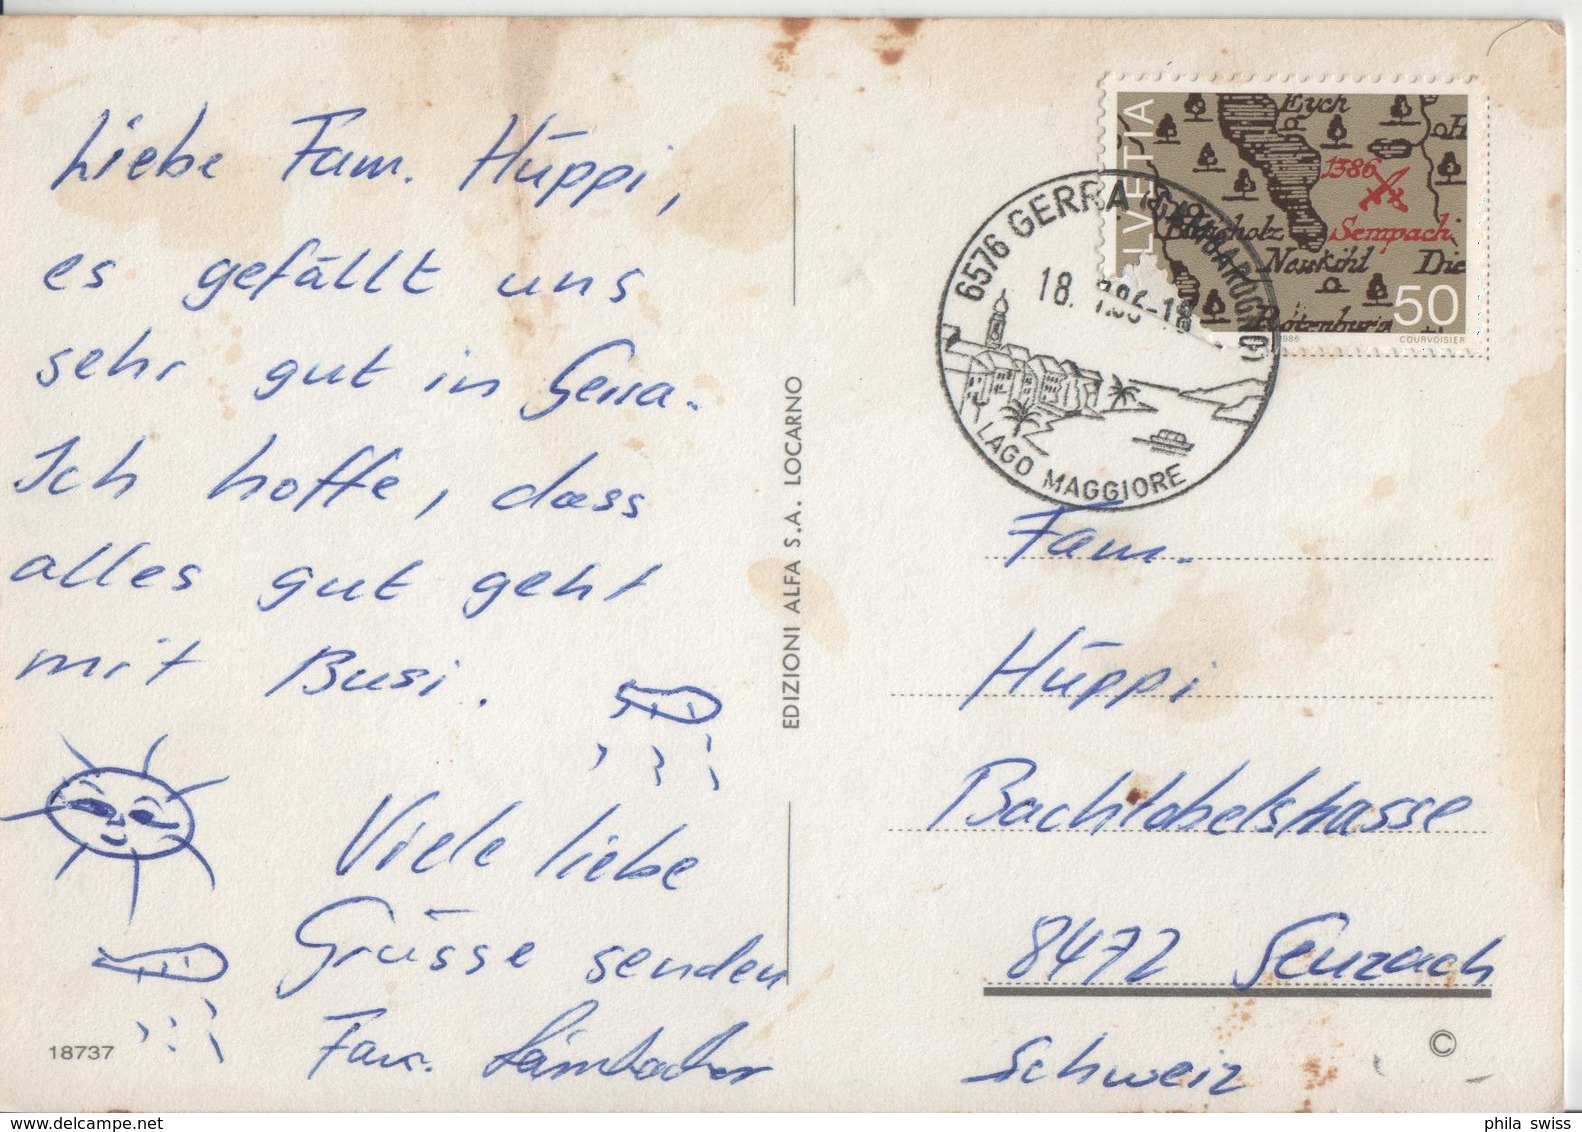 Liebe Fam. Hüppi,
es gefällt uns
sehr gut in Gerra.
Ich hoffe, dass
alles gut geht
mit Busi.
Viele liebe
Grüsse senden
Fam.
18737
EDIZIONI ALFA S.A. LOCARNO
HELVETIA
Eych
1386
Sempach
Buchholz
Neukihl
Die
Rotenburg
50
1986
COURVOISIER
6576 GERRA (GAMBAROGNO)
18. 7.86-1
LAGO MAGGIORE
Fam.
Hüppi
Bachtobelstrasse
8472 Seuzach
Schweiz
©
phila swiss